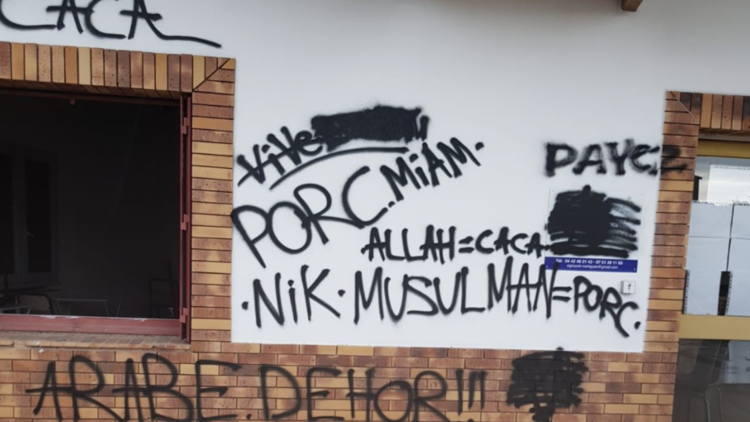 CACA
ViVe
PORC.MiAM.
PAYEZ
ALLAH=CACA.
.NiK.MUSULMAN=PORC.
ARABE.DEHOR!!!